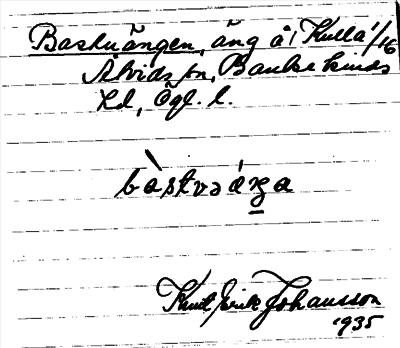 Bastuängen, äng å Kulla 1/16
Åtvids sn, Bankekinds
hd, Ögl. l.
bàstvəáŋa
Knut Erik Johansson
1935